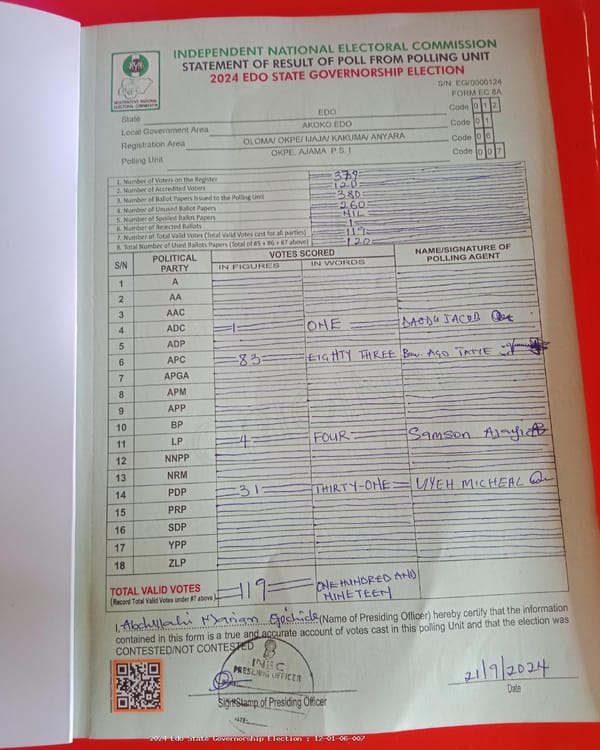 INDEPENDENT NATIONAL ELECTORAL COMMISSION
STATEMENT OF RESULT OF POLL FROM POLLING UNIT
2024 EDO STATE GOVERNORSHIP ELECTION
S/N: EG/0000124
FORM EC 8A
INEC
INDEPENDENT NATIONAL ELECTORAL COMMISSION
State EDO Code 012
Local Government Area AKOKO EDO Code 01
Registration Area OLOMA/ OKPE/ IJAJA/ KAKUMA/ ANYARA Code 06
Polling Unit OKPE, AJAMA P.S. I Code 007
1. Number of Voters on the Register 379
2. Number of Accredited Voters 120
3. Number of Ballot Papers Issued to the Polling Unit 380
4. Number of Unused Ballot Papers 260
5. Number of Spoiled Ballot Papers NIL
6. Number of Rejected Ballots 1
7. Number of Total Valid Votes (Total Valid Votes cast for all parties) 119
8. Total Number of Used Ballots Papers (Total of #5 + #6 + #7 above) 120
S/N POLITICAL PARTY VOTES SCORED NAME/SIGNATURE OF POLLING AGENT
IN FIGURES IN WORDS
1 A
2 AA
3 AAC
4 ADC 1 ONE DAODU JACOB
5 ADP
6 APC 83 EIGHTY THREE
7 APGA
8 APM
9 APP
10 BP
11 LP 4 FOUR Samson Ajayi
12 NNPP
13 NRM
14 PDP 31 THIRTY-ONE UYEH MICHEAL
15 PRP
16 SDP
17 YPP
18 ZLP
TOTAL VALID VOTES 119 ONE HUNDRED AND NINETEEN
(Record Total Valid Votes under #7 above)
I, Abdullahi (Name of Presiding Officer) hereby certify that the information
contained in this form is a true and accurate account of votes cast in this polling Unit and that the election was
CONTESTED/NOT CONTESTED
INEC
PRESIDING OFFICER
Sign/Stamp of Presiding Officer
21/9/2024
Date
2024 Edo State Governorship Election : 12-01-06-007